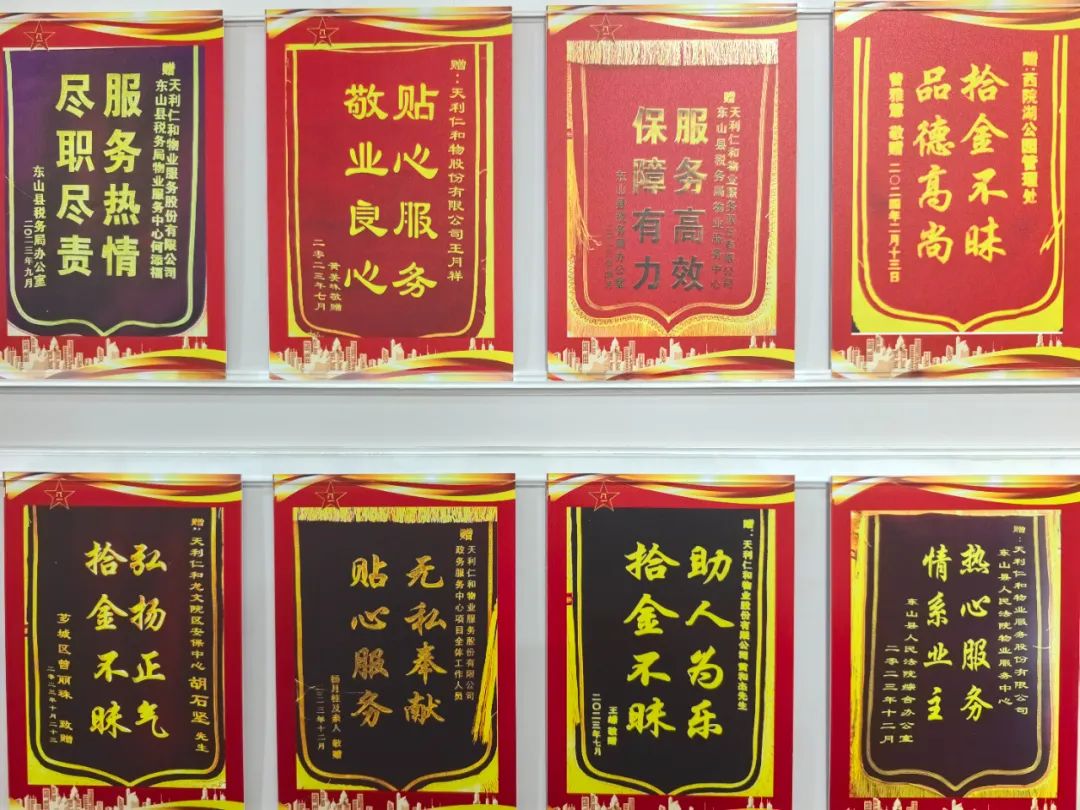 赠天利仁和物业服务股份有限公司
东山县税务局物业服务中心何添福
服务热情
尽职尽责
东山县税务局办公室
二〇二三年九月
赠:天利仁和物股份有限公司王月祥
贴心服务
敬业良心
黄美珠敬赠
二零二三年七月
赠天利仁和物业服务股份有限公司
东山县税务局物业服务中心
服务高效
保障有力
东山县税务局办公室
赠:西院湖公园管理处
拾金不昧
品德高尚
曾雅慧 敬赠 二〇二四年二月十三日
赠:天利仁和龙文院区安保中心 胡石坚 先生
弘扬正气
拾金不昧
芗城区曾丽珠 致赠
二零二三年十月二十三
赠天利仁和物业服务股份有限公司
政务服务中心项目全体工作人员
无私奉献
贴心服务
敬赠
二〇二三年十二月
赠:天利仁和物业股份有限公司黄和杰先生
助人为乐
拾金不昧
敬赠
二〇二三年七月
赠:天利仁和物业服务股份有限公司
东山县人民法院物业服务中心
热心服务
情系业主
东山县人民法院综合办公室
二零二三年十二月